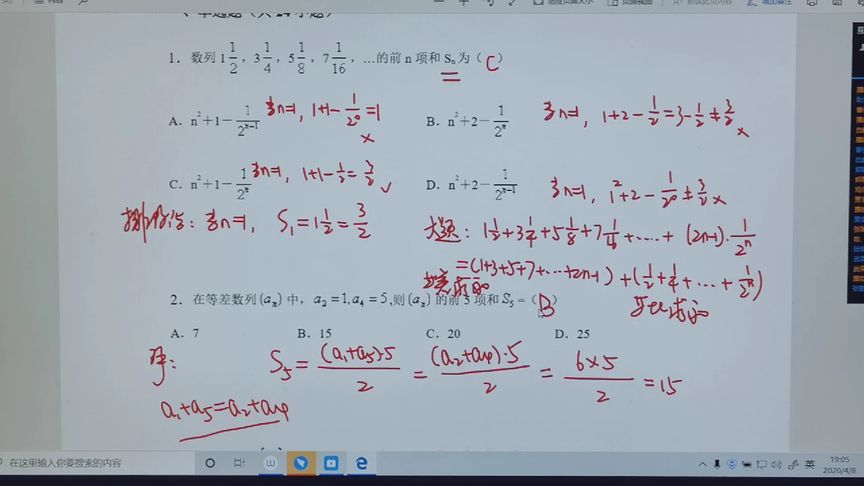 1. 数列1 1/2, 3 1/4, 5 1/8, 7 1/16, …的前n项和Sₙ为( C )
A. n²+1-1/2ⁿ⁻¹ 当n=1, 1+1-1/2⁰=1 ×
B. n²+2-1/2ⁿ 当n=1, 1+2-1/2=3-1/2≠3/2 ×
C. n²+1-1/2ⁿ 当n=1, 1+1-1/2=3/2 ✓
D. n²+2-1/2ⁿ⁻¹ 当n=1, 1²+2-1/2⁰≠3/2 ×
排除法: 当n=1, S₁=1 1/2=3/2
大题: 1 1/2+3 1/4+5 1/8+7 1/16+……+(2n-1)·1/2ⁿ
=(1+3+5+7+…+2n-1)+(1/2+1/4+…+1/2ⁿ)
等差求和
等比求和
2. 在等差数列{aₙ}中, a₂=1,a₄=5,则{aₙ}的前5项和S₅=( B )
A. 7
B. 15
C. 20
D. 25
S₅=(a₁+a₅)·5/2=(a₂+a₄)·5/2=6×5/2=15
a₁+a₅=a₂+a₄
在这里输入你要搜索的内容
英
19:05
2020/4/8